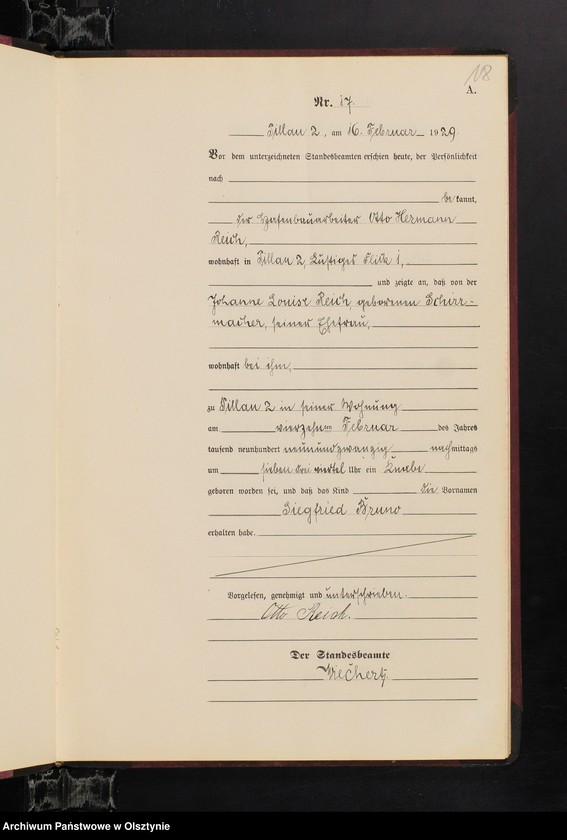 118
A.
Nr. 17.
Pillau 2, am 16. Februar 1929.
Vor dem unterzeichneten Standesbeamten erschien heute, der Persönlichkeit
nach
bekannt,
der Hafenbauarbeiter Otto Hermann
Reich,
wohnhaft in Pillau 2, Lustiges Flick 1,
und zeigte an, daß von der
Johanne Louise Reich, geborenen Schirr-
macher, seiner Ehefrau,
wohnhaft bei ihm,
zu Pillau 2 in seiner Wohnung
am vierzehn Februar des Jahres
tausend neunhundert neunundzwanzig nachmittags
um sieben drei viertel Uhr ein Knabe
geboren worden sei, und daß das Kind die Vornamen
Siegfried Bruno
erhalten habe.
Vorgelesen, genehmigt und unterschrieben.
Otto Reich.
Der Standesbeamte
Archiwum Państwowe w Olsztynie